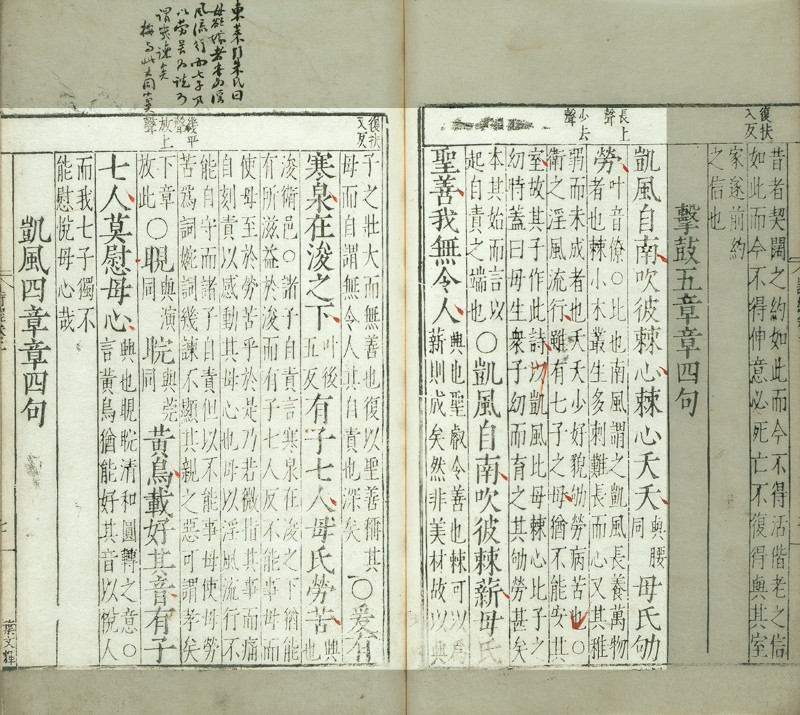 復扶
又反
昔者契闊之約如此而今不得活偕老之信
如此而今不得伸意必死亡不復得與其室
家遂前約
之信也
擊鼓五章章四句
長上
聲
凱風自南吹彼棘心棘心夭夭與腰同母氏劬
少去
聲
勞叶音僚○比也南風謂之凱風長養萬物
者也棘小木叢生多刺難長而心又其稚
弱而未成者也夭夭少好貌劬勞病苦也○
衛之淫風流行雖有七子之母猶不能安其
室故其子作此詩以凱風比母棘心比子之
幼時蓋曰母生衆子幼而育之其劬勞甚矣
本其始而言以
起自責之端也○凱風自南吹彼棘薪母氏
聖善我無令人興也聖叡令善也棘可以為
薪則成矣然非美材故以興
東萊引朱氏曰
風流行而七子乃
復扶
又反
子之壯大而無善也復以聖善稱其
母而自謂無令人其自責也深矣○爰有
寒泉在浚之下叶後五反有子七人母氏勞苦興也
浚衛邑○諸子自責言寒泉在浚之下猶能
有所滋益於浚而有子七人反不能事母而
使母至於勞苦乎於是乃若微指其事而痛
自刻責以感動其母心也母以淫風流行不
幾平
聲
能自守而諸子自責但以不能事母使母勞
苦為詞婉詞幾諫不顯其親之惡可謂孝矣
放上
聲
下章
放此○睍與演同睆與莞同黃鳥載好其音有子
七人莫慰母心興也睍睆清和圓轉之意○
言黃鳥猶能好其音以悅人
而我七子獨不
能慰悅母心哉
凱風四章章四句
葉文輝